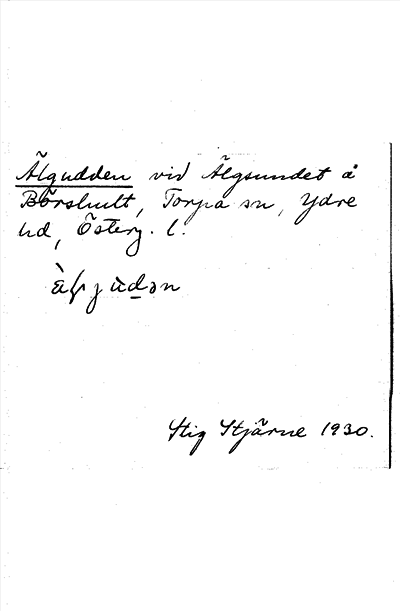 Älgudden vid Älgsundet å
Börshult, Torpa sn, Ydre
hd, Österg. l.
Stig Stjärne 1930.